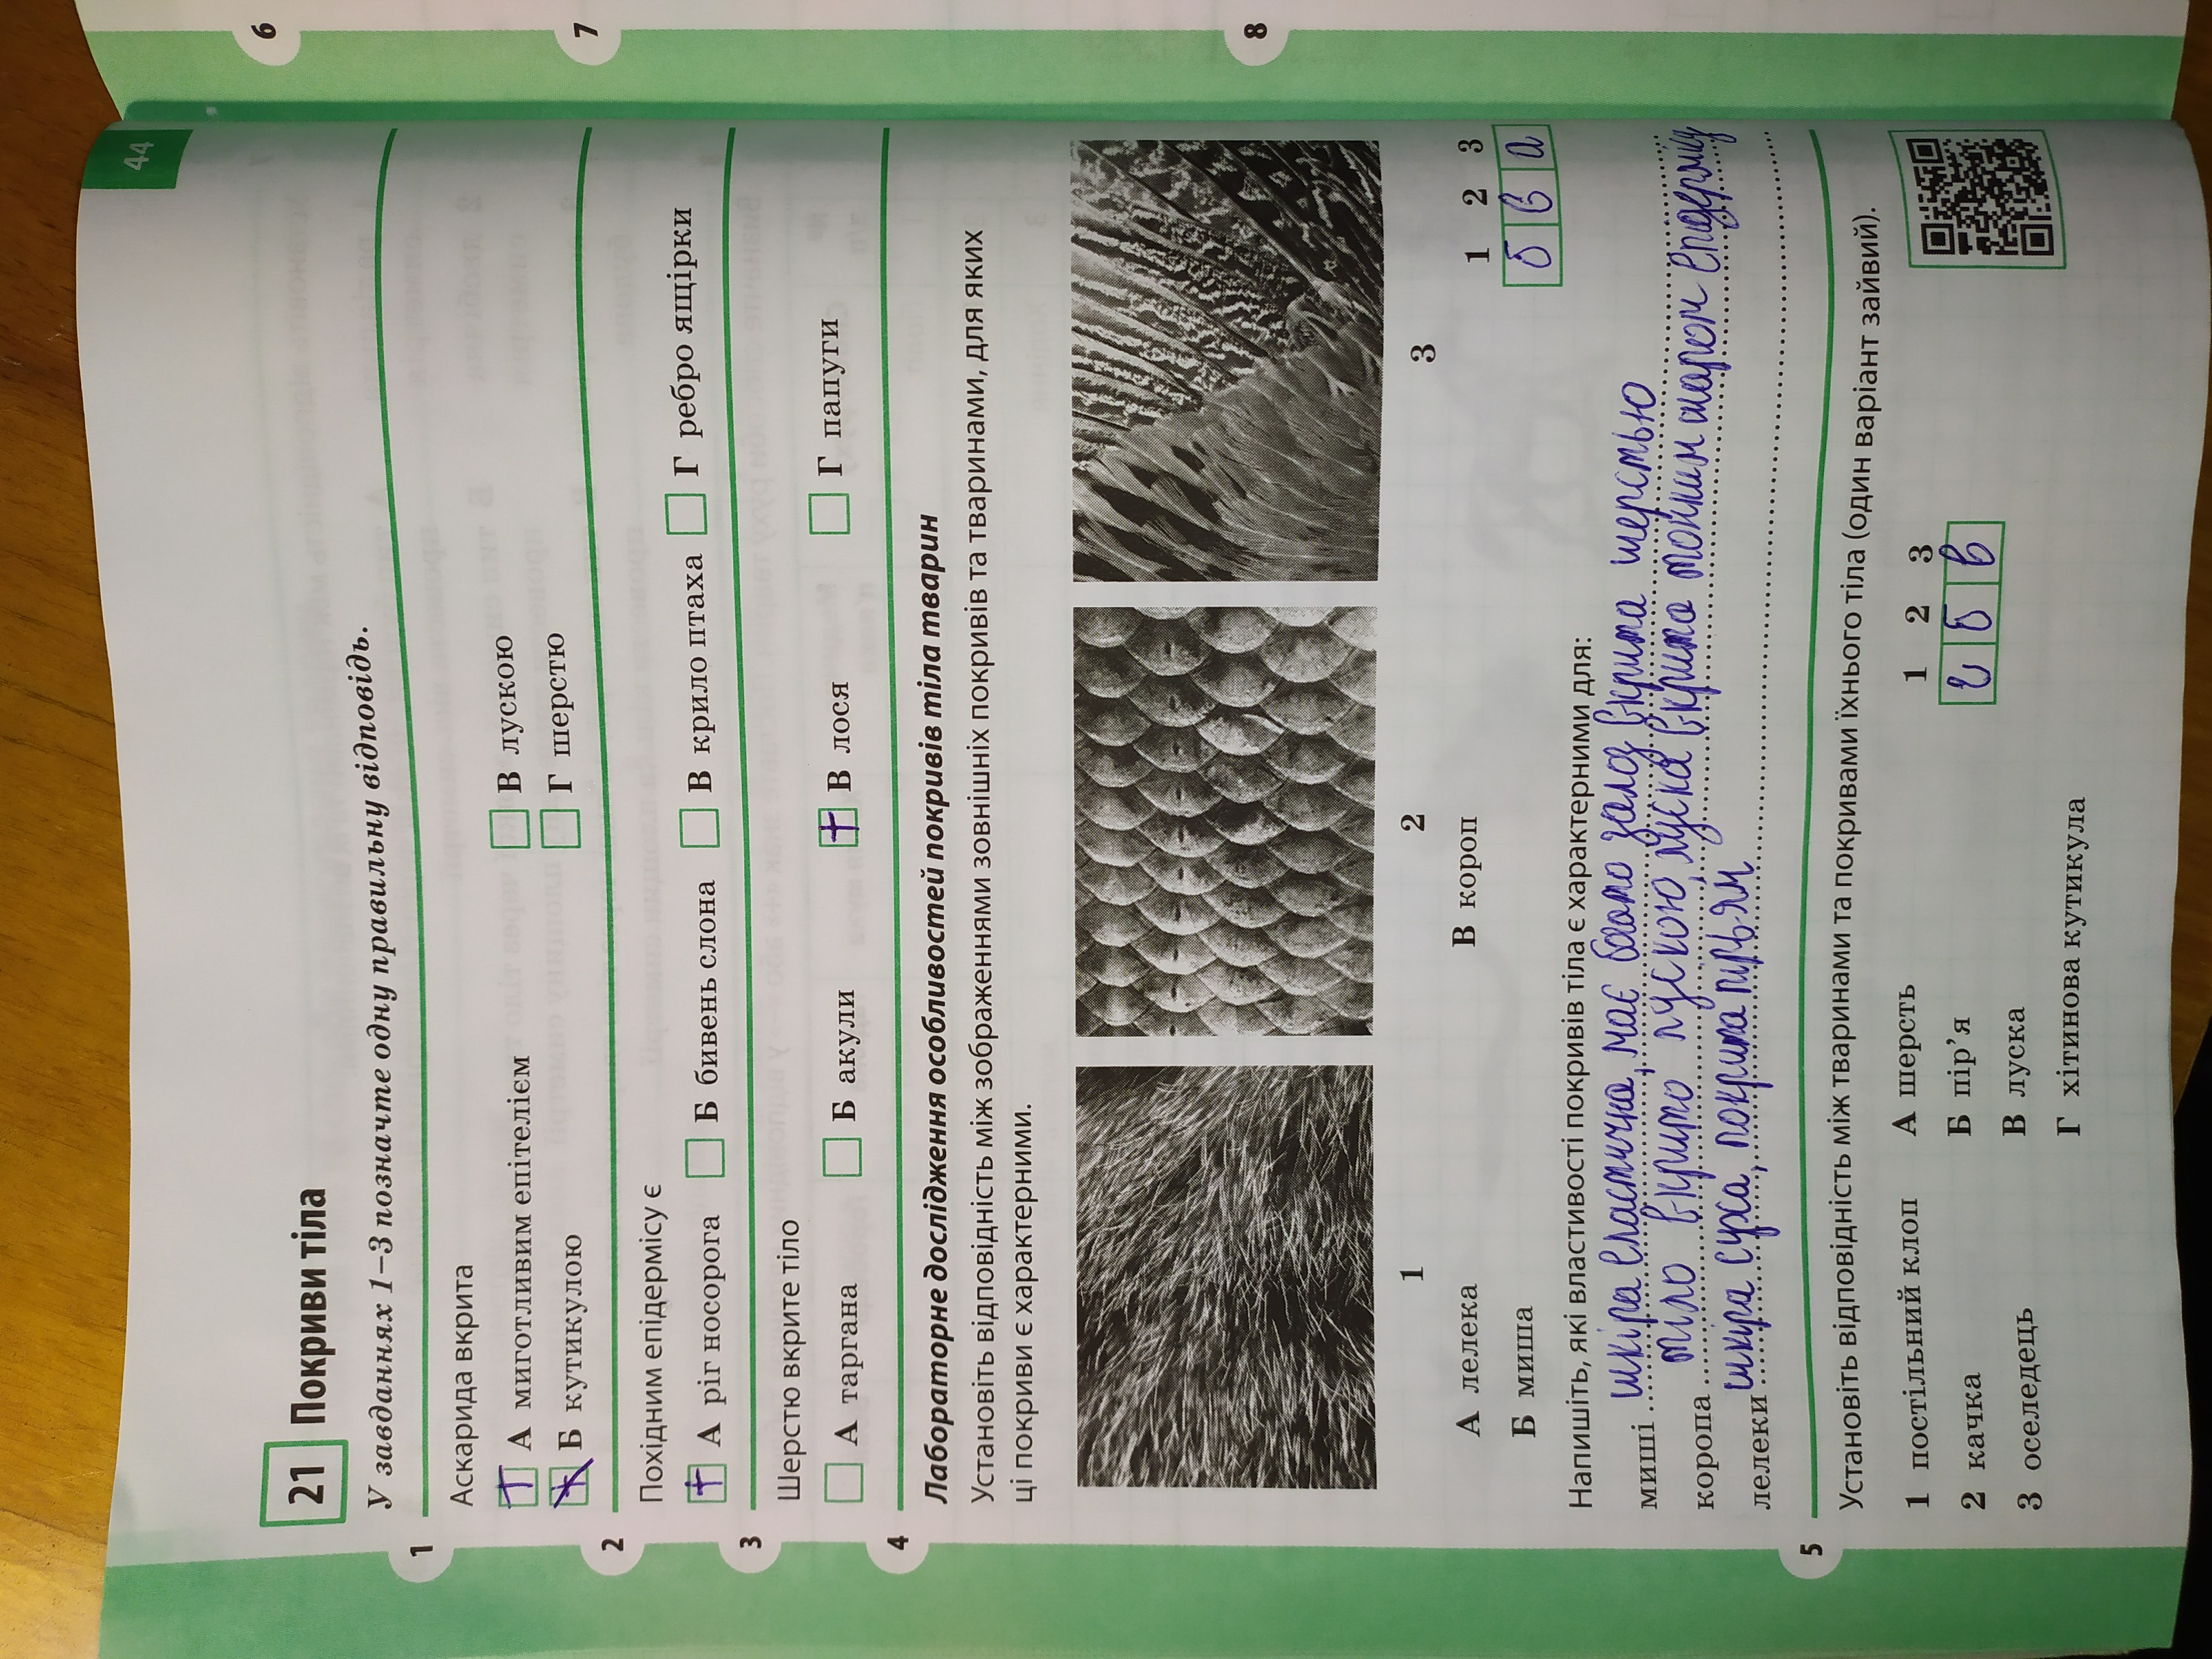 44
21 Покриви тіла
У завданнях 1–3 позначте одну правильну відповідь.
1
Аскарида вкрита
А миготливим епітелієм В лускою
Б кутикулою Г шерстю
2
Похідним епідермісу є
А ріг носорога Б бивень слона В крило птаха Г ребро ящірки
3
Шерстю вкрите тіло
А таргана Б акули В лося Г папуги
4
Лабораторне дослідження особливостей покривів тіла тварин
Установіть відповідність між зображеннями зовнішніх покривів та тваринами, для яких
ці покриви є характерними.
1 2 3
А лелека В короп
Б миша
1 2 3
б в а
Напишіть, які властивості покривів тіла є характерними для:
миші шкіра еластична, має багато залоз вкрита шерстью
коропа тіло вкрито лускою, луска вкрита тонким шаром епідерміу
лелеки шкіра суха, покрита пірьям
5
Установіть відповідність між тваринами та покривами їхнього тіла (один варіант зайвий).
1 постільний клоп А шерсть
2 качка Б пір’я
3 оселедець В луска
Г хітинова кутикула
1 2 3
г б в
6
7
8